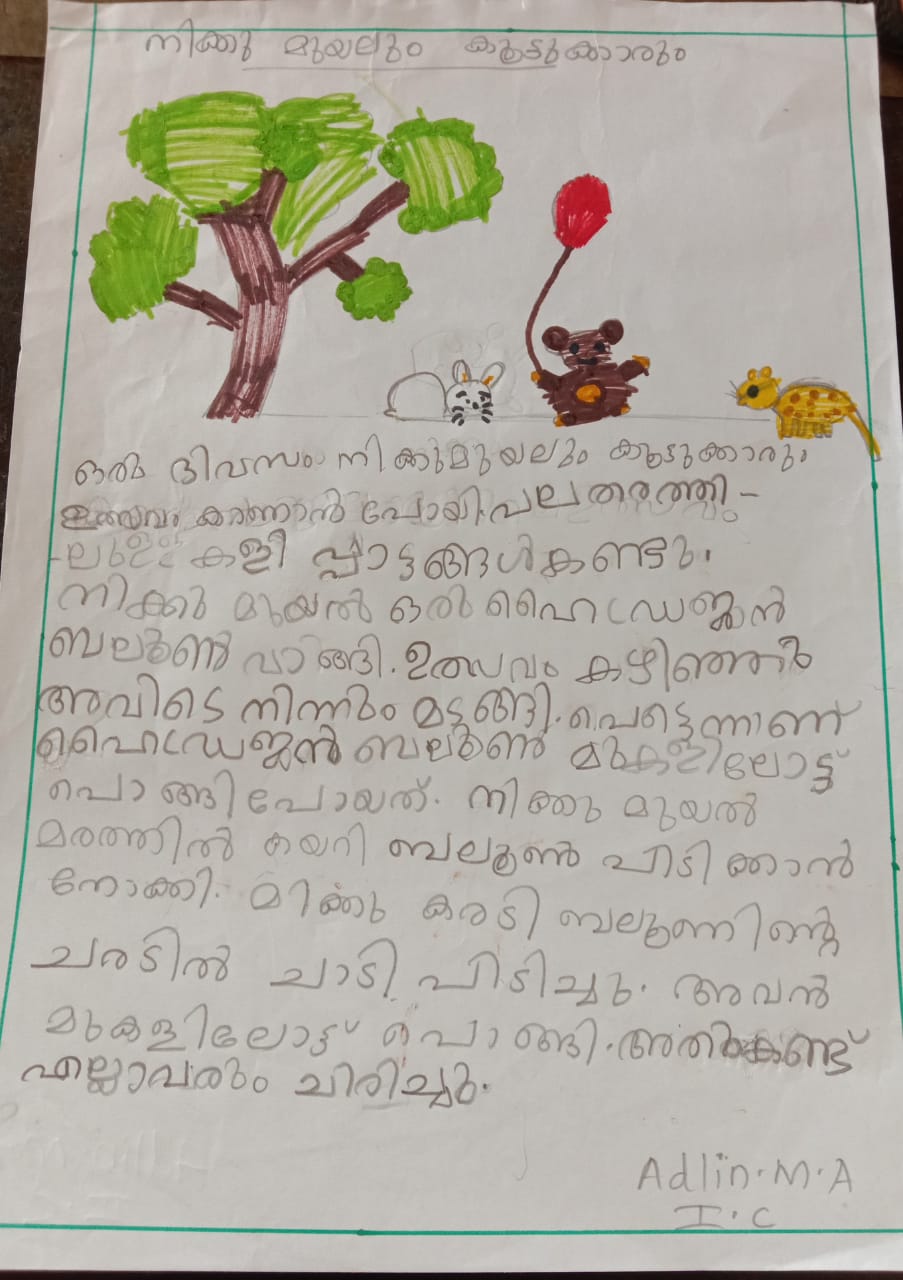 നിക്കു മുയലും കൂട്ടുക്കാരും
ഒരു ദിവസം നിക്കുമുയലും കൂട്ടുക്കാരും
ഉത്സവം കാണാൻ പോയി. പല തരത്തി-
-ലുള്ള കളിപ്പാട്ടങ്ങൾ കണ്ടു.
നിക്കു മുയൽ ഒരു ഹൈഡ്രജൻ
ബലൂൺ വാങ്ങി. ഉത്സവം കഴിഞ്ഞ്
അവിടെ നിന്നും മടങ്ങി. പെട്ടെന്നാണ്
ഹൈഡ്രജൻ ബലൂൺ മുകളിലോട്ട്
പൊങ്ങി പോയത്. നിക്കു മുയൽ
മരത്തിൽ കയറി ബലൂൺ പിടിക്കാൻ
നോക്കി. മിക്കു കരടി ബലൂണിന്റെ
ചരടിൽ ചാടി പിടിച്ചു. അവൻ
മുകളിലോട്ട് പൊങ്ങി. അതുകണ്ട്
എല്ലാവരും ചിരിച്ചു.
Adlin.M.A
I.C